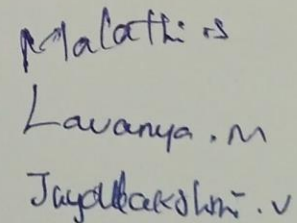 Malathi .S
Lavanya . M
Jayalakshmi . V